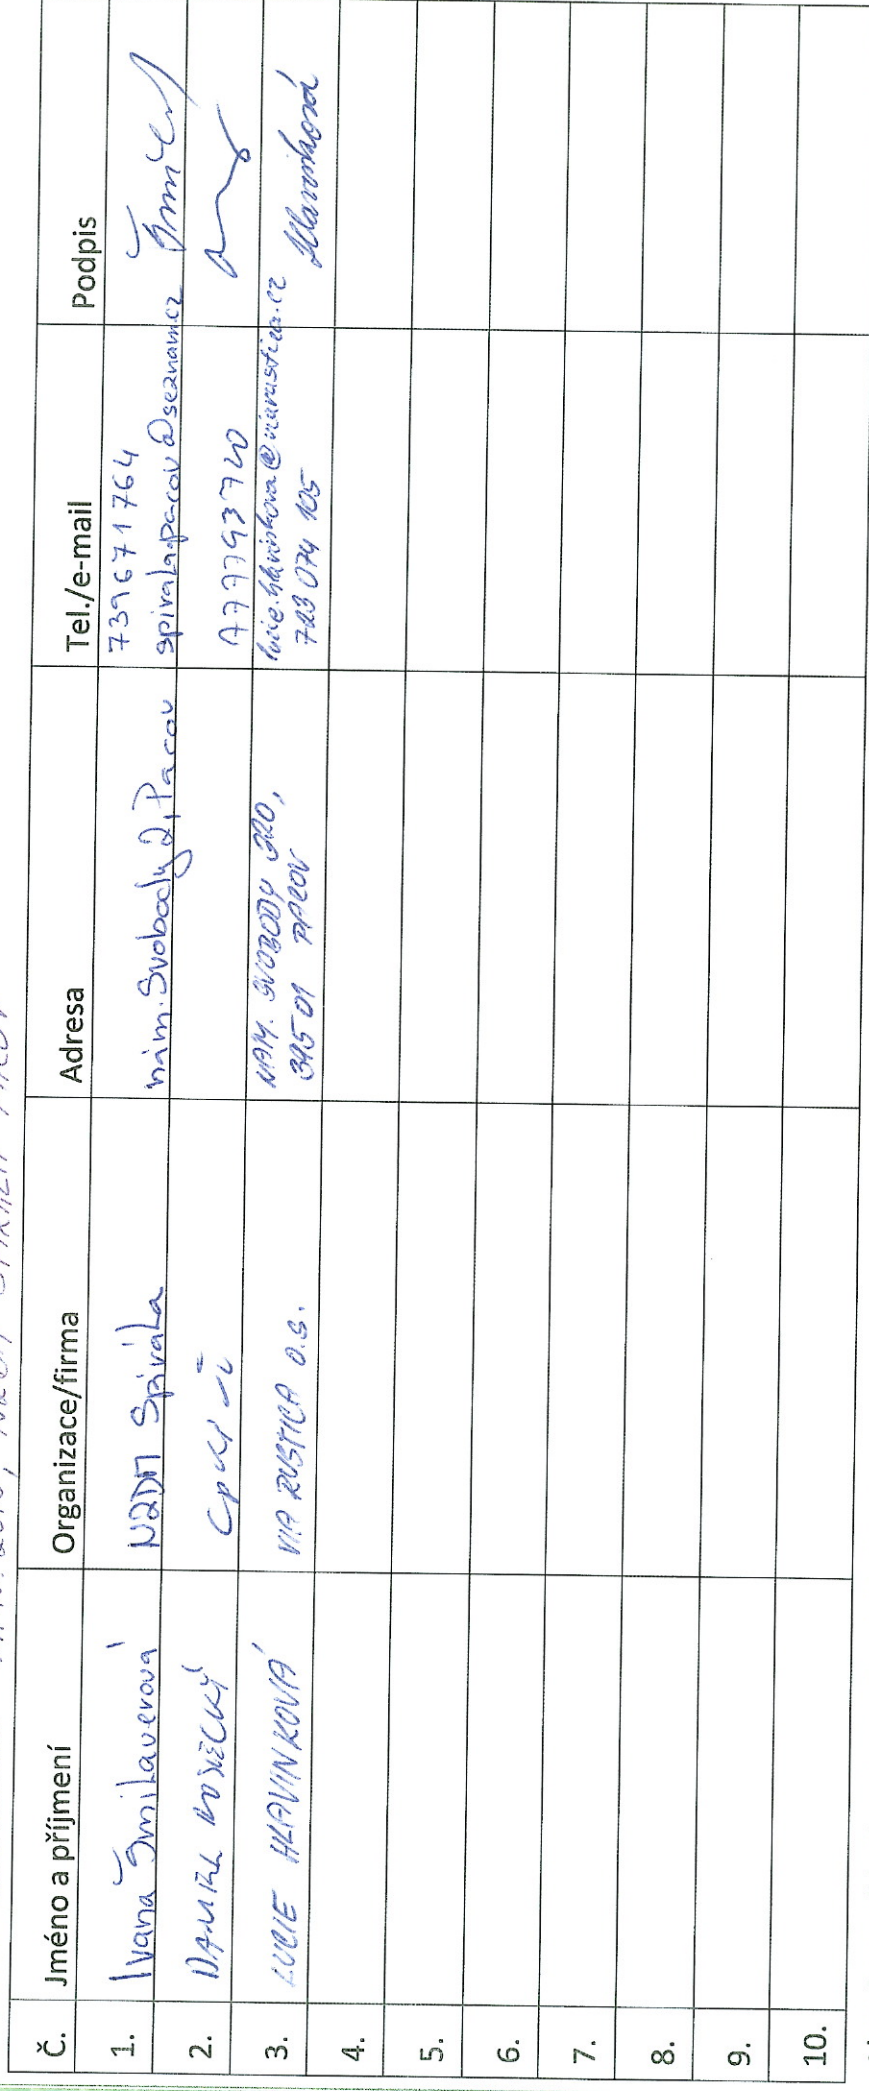 Č. Jméno a příjmení Organizace/firma Adresa Tel./e-mail Podpis
1. Ivana Šmilauerová NZDM Spirála nám. Svobody 2, Pacov 739671764
spirala.pacov@seznam.cz
2. DANIEL 777793720
3. LUCIE HLAVINKOVÁ VIA RUSTICA o.s. NÁM. SVOBODY 320, lucie.hlavinkova@viarustica.cz Hlavinková
395 01 PACOV 723 074 105
4.
5.
6.
7.
8.
9.
10.